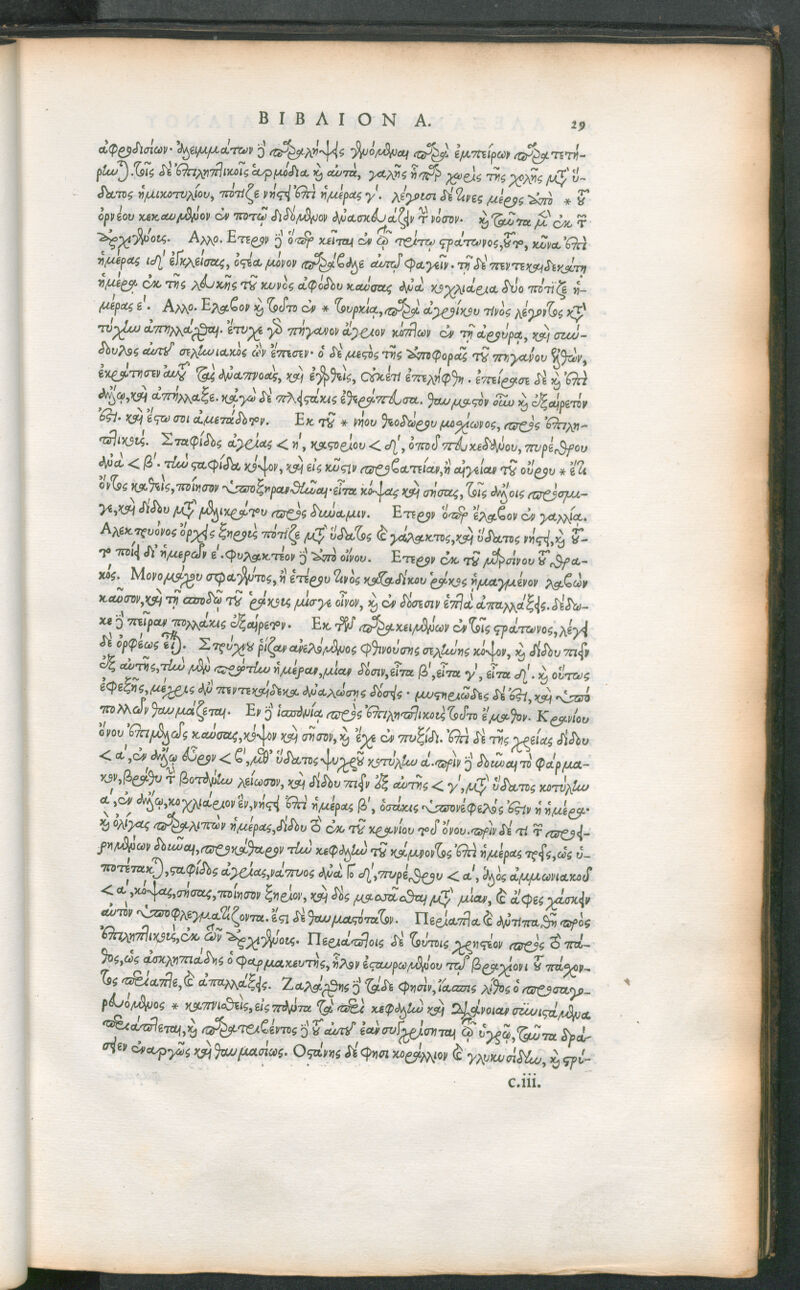 ΒΙΒΛΙΟΝ Α. 29
ἀφροδισίων· ἀλειμμάτων δὲ παραλήψεις γενόμεναι παρὰ ἐμπείρων παρατετή-
ρηνται. τοῖς δὲ ἐπιληπτικοῖς ἁρμόδια καὶ αὐτὰ, γαλῆς ἧπαρ χωρὶς τῆς χολῆς μετὰ ὕ-
δατος ἡμικοτυλίου, πότιζε νήστει ἐπὶ ἡμέρας γ΄. λέγουσι δέ τινες μέρος ἀπὸ * τοῦ
ὀρνέου κεκαυμένον ἐν ποτῷ διδόμενον διασκευάζειν τὴν νόσον. καὶ ταῦτα μὲν ἐκ τῶν
ἀρχιγένους. Αλλο. Ετερον δὲ ὅπερ κεῖται ἐν τῷ τρίτῳ στράτωνος, τοῦτο, κῦνα ἐπὶ
ἡμέρας ιδ΄ ἐγκλείσας, ὀστέα μόνον παράβαλε αὐτῷ φαγεῖν. τῇ δὲ πεντεκαιδεκάτῃ
ἡμέρᾳ ἐκ τῆς λευκῆς τοῦ κυνὸς ἀφόδου καύσας ἀνὰ κοχλιάρια δύο πότιζε ἡ-
μέρας ε΄. Αλλο. Ελαβον καὶ τοῦτο ἐν * τουρκία, παρὰ ἀγροίκου τινὸς λέγοντος κατὰ
τύχην ἀπηλλάχθαι. ἔτυχε γὰρ πήγανον ἄγριον κόπτων ἐν τῇ ἀρούρᾳ, καὶ σύν-
δουλος αὐτοῦ σεληνιακὸς ὢν ἔπεσεν· ὁ δὲ μεστὸς τῆς ἀποφορᾶς τοῦ πηγάνου
ἐκράτησεν αὐτοῦ τὰς διαπνοὰς, καὶ ἐγερθεὶς, οὐκέτι ἐπελήφθη. ἐπείρασε δὲ καὶ ἐπὶ
ἄλλῳ, καὶ ἀπήλλαξε. κἀγὼ δὲ πλειστάκις ἐθεράπευσα. θαυμαστὸν οὖν καὶ ἐξαίρετόν
ἐστι. καὶ ἔστω σοι ἀμετάδοτον. Εκ τοῦ * νήου θεοδώρου μοσχίωνος, πρὸς ἐπιλη-
πτικούς. Σταφίδος ἀγρίας < η΄, καστορίου < δ΄, ὀποῦ πευκεδάνου, πυρέθρου
ἀνὰ < β΄. τὴν σταφίδα κόψον, καὶ εἰς κύστιν προβατείαν, ἢ αἰγείαν τοῦ οὔρου * ἔτι
ὄντος καθεὶς, ποίησον ὑποξηρανθῆναι· εἶτα κόψας καὶ σήσας, τοῖς ἄλλοις πρόσμι-
γε, καὶ δίδου μετὰ μελικράτου πρὸς δύναμιν. Ετερον ὅπερ ἔλαβον ἐν γαλλία.
Αλεκτρυόνος ὄρχεις ξηροὺς πότιζε μετὰ ὕδατος καὶ γάλακτος, καὶ ὕδατος νήστει, καὶ τοῦ-
το ποίει δι᾽ ἡμερῶν ε΄. φυλακτέον δὲ ἀπὸ οἴνου. Ετερον ἐκ τοῦ μαρσίνου τοῦ θρα-
κός. Μονομάχου σφαγέντος, ἢ ἑτέρου τινὸς καταδίκου ῥάκος ᾑμαγμένον λαβὼν
καῦσον, καὶ τῇ σποδῷ τοῦ ῥάκους μίσγε οἶνον, καὶ ἐν δόσεσιν ἑπτὰ ἀπαλλάξεις. δέδω-
κε δὲ πεῖραν πολλάκις ἐξαίρετον. Εκ τῶν παρακειμένων ἐν τοῖς στράτωνος, λέγει
δὲ ὀρφέως εἶναι. Στρύχνου ῥίζαν ἀνελόμενος φθινούσης σελήνης κόψον, καὶ δίδου πιεῖν
ἐξ αὐτῆς, τὴν μὲν πρώτην ἡμέραν, μίαν δόσιν, εἶτα β΄, εἶτα γ΄, εἶτα δ΄. καὶ οὕτως
ἐφεξῆς, μέχρις ἂν πεντεκαίδεκα ἀναλώσῃς δόσεις· μυστηριῶδες δέ ἐστι, καὶ ὑπὸ
πολλῶν θαυμάζεται. Εν δὲ ἱσπανία πρὸς ἐπιληπτικοὺς τοῦτο ἔμαθον. Κρανίου
ὄνου ἐπιμελῶς καύσας, κόψον καὶ σῆσον, καὶ ἔχε ἐν πυξίδι. ἐπὶ δὲ τῆς χρείας δίδου
< α΄, ἐν ἄλλῳ εὗρον < β΄, μεθ᾽ ὕδατος ψυχροῦ κοτύλην α΄. πρὶν δὲ δοῦναι τὸ φάρμα-
κον, βράθυ τὴν βοτάνην λείωσον, καὶ δίδου πιεῖν ἐξ αὐτῆς < γ΄, μετὰ ὕδατος κοτύλην
α΄, ἐν ἄλλῳ, κοχλιάριον ἓν, νήστει ἐπὶ ἡμέρας β΄, ὁσάκις ὑπονέφελός ἐστιν ἡ ἡμέρα·
καὶ ὀλίγας παραλιπὼν ἡμέρας, δίδου τὸ ἐκ τοῦ κρανίου τοῦ ὄνου. πρὶν δέ τι τῶν προει-
ρημένων δοῦναι, προκάθαρον τὴν κεφαλὴν τοῦ κάμνοντος ἐπὶ ἡμέρας τρεῖς, ὡς ὑ-
ποτέτακται, σταφίδος ἀγρίας, νάπυος ἀνὰ δ΄, πυρέθρου < α΄, ἁλὸς ἀμμωνιακοῦ
< α΄, κόψας, σήσας, ποίησον ξηρίον, καὶ δὸς μασᾶσθαι μετὰ μίαν, καὶ ἄφες χάσκειν
αὐτὸν ὑποφλεγματίζοντα. ἔστι δὲ θαυμαστότατον. Περίαπτα καὶ ἀντιπαθῆ πρὸς
ἐπιληπτικοὺς, ἐκ τῶν ἀρχιγένους. Περιάπτοις δὲ τούτοις χρηστέον πρὸς τὸ πά-
θος, ὡς ἀσκληπιάδης ὁ φαρμακευτὴς, ἧλον ἐσταυρωμένου τῷ βραχίονι τοῦ πάσχον-
τος περίαπτε, καὶ ἀπαλλάξεις. Ζαλάχθης δὲ τάδε φησὶν, ἴασπις λίθος ὁ προσαγο-
ρευόμενος * καπνισθεὶς, εἰς πολλὰ τὰ περὶ κεφαλὴν καὶ διάνοιαν συνιστάμενα
περιάπτεται, καὶ παρατριβέντος δὲ τοῦ αὐτοῦ ἐὰν συγχρίσηται τῷ ὑγρῷ, ταῦτα δρά-
σειεν ἐναργῶς καὶ θαυμασίως. Οστάνης δέ φησι κοράλλιον καὶ γλυκυσίδην, καὶ στρύ-
c.iii.